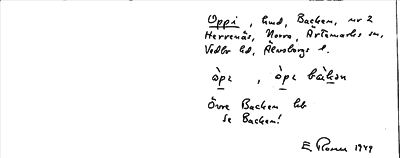 Oppi, hmd, Backen, nr 2
Herrenäs, Norra, Ärtemarks sn,
Vedbo hd, Älvsborgs l.
òpɩ , òpɩ bàkən
Övre Backen hb
se Backen!
E Rosen 1949